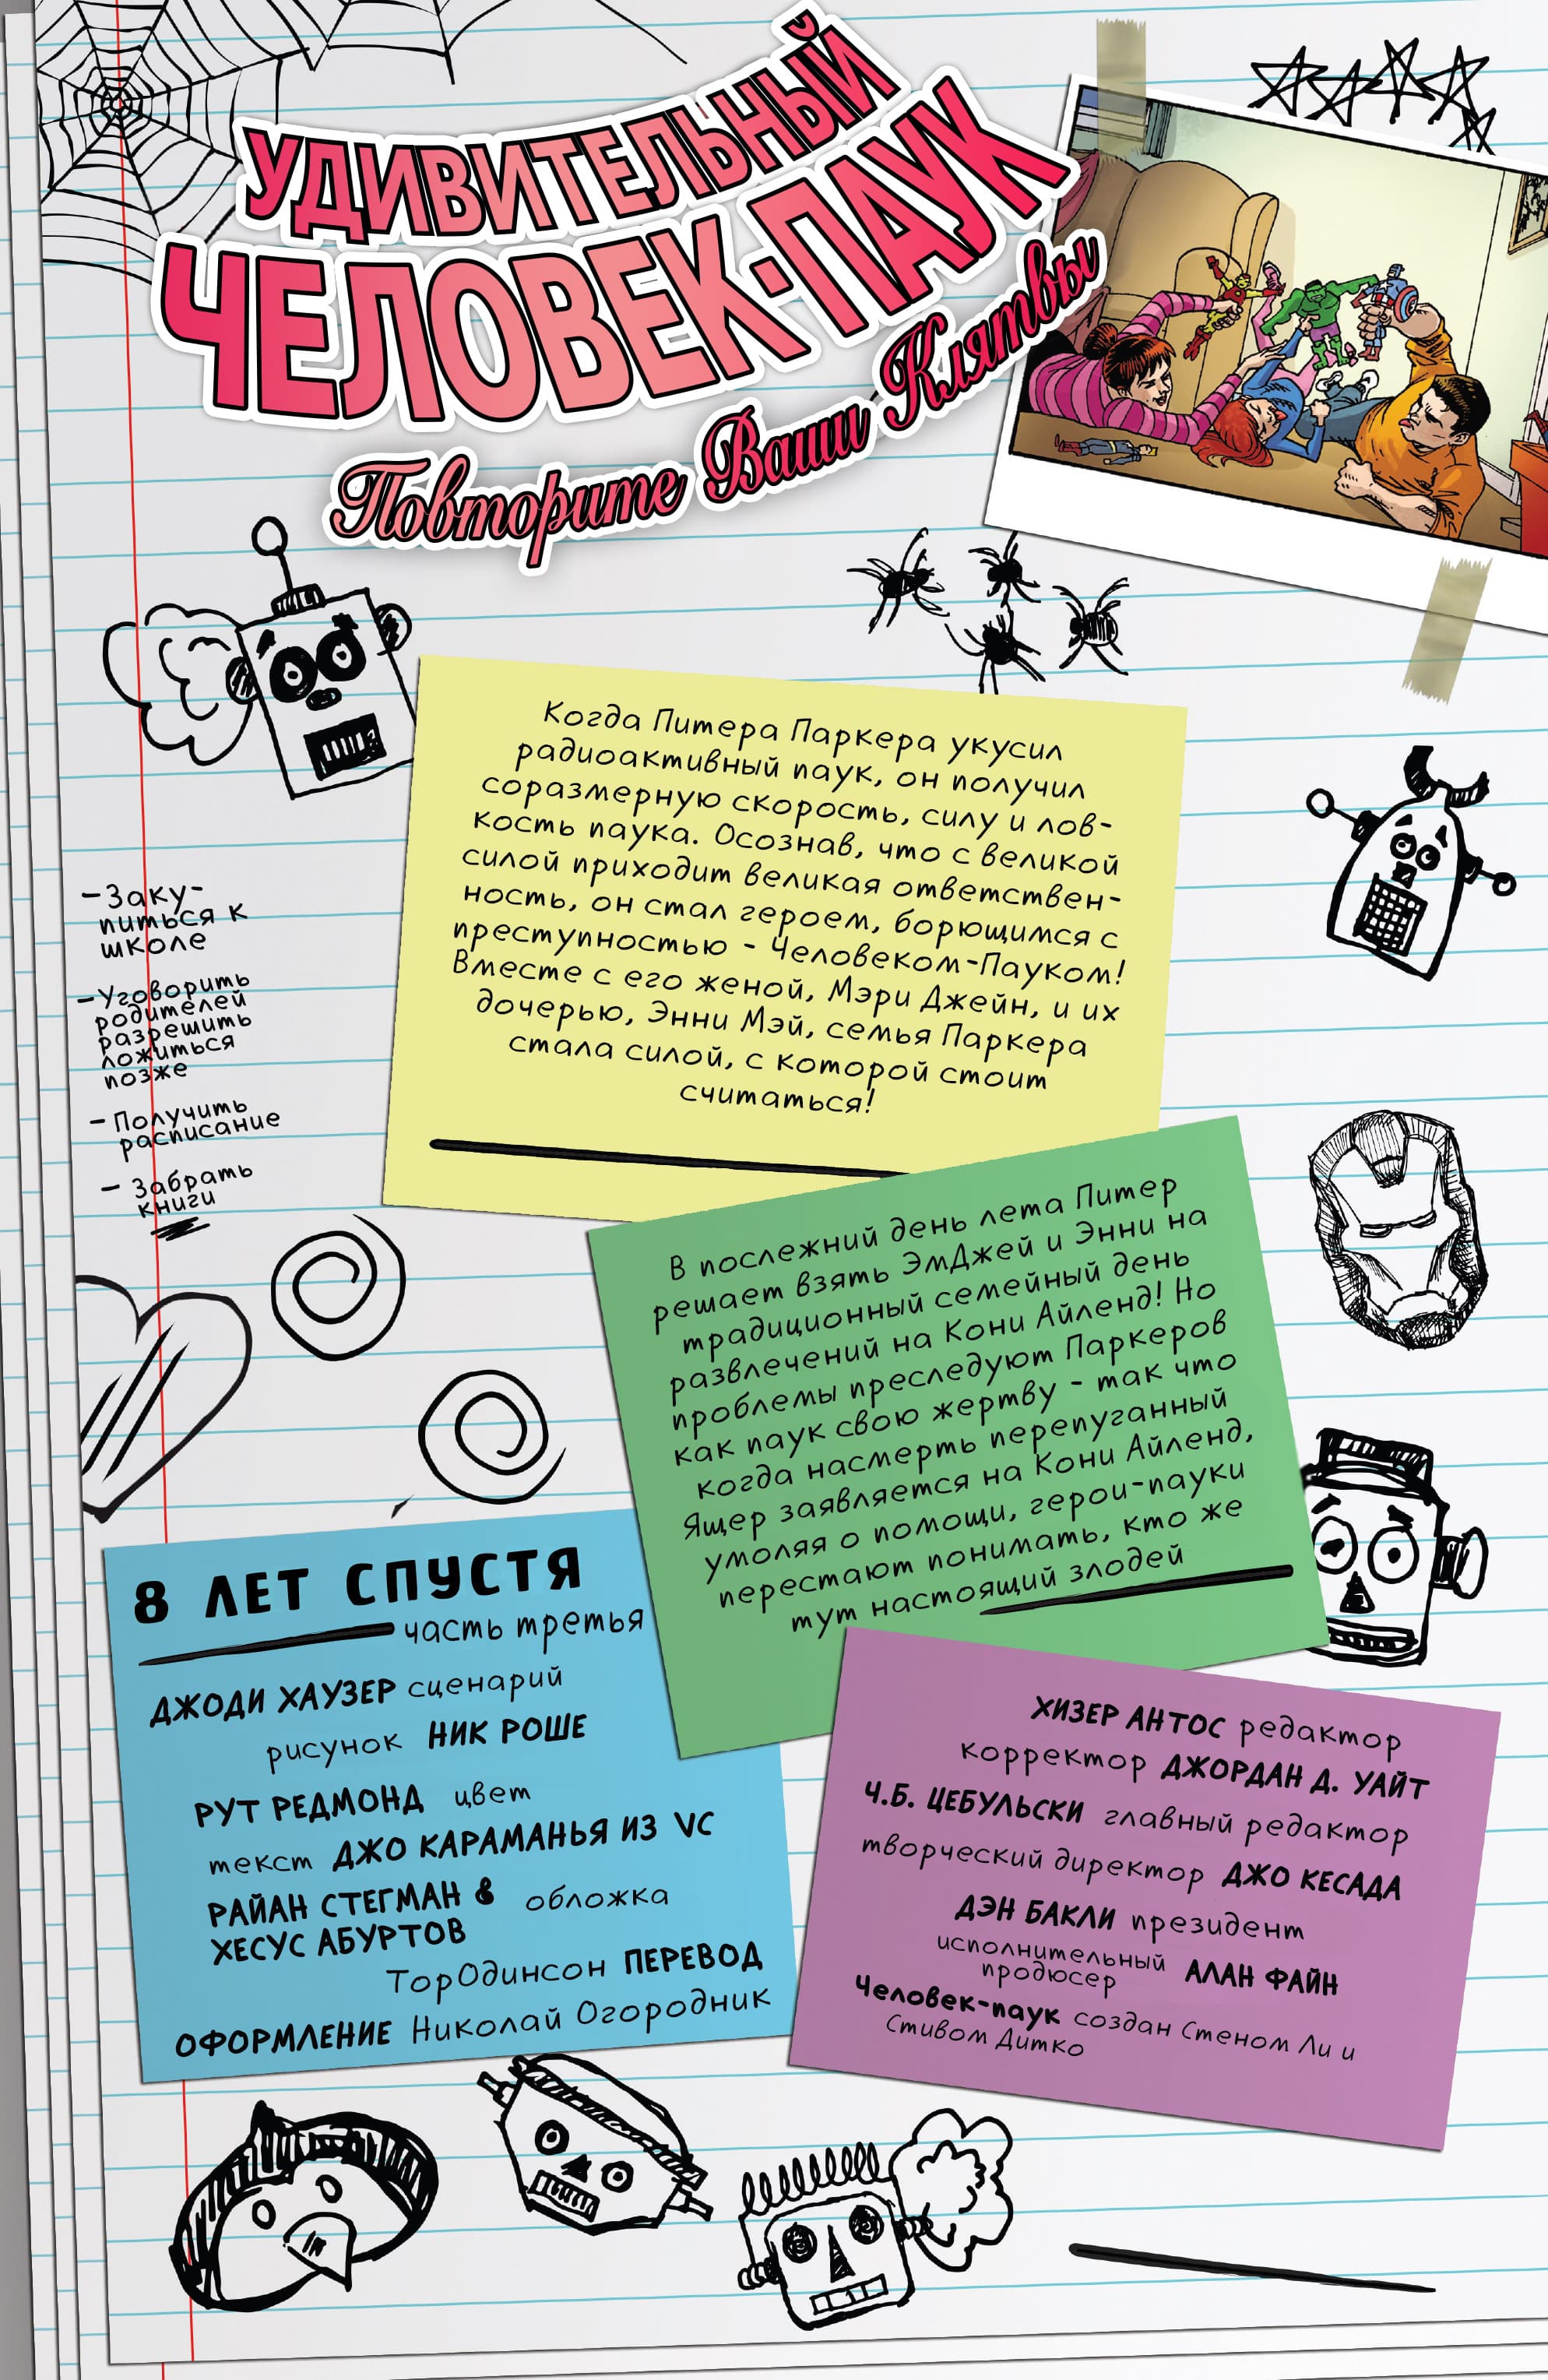 УДИВИТЕЛЬНЫЙ
ЧЕЛОВЕК-ПАУК
Повторите Ваши Клятвы
Когда Питера Паркера укусил
радиоактивный паук, он получил
соразмерную скорость, силу и лов-
кость паука. Осознав, что с великой
силой приходит великая ответствен-
ность, он стал героем, борющимся с
преступностью - Человеком-Пауком!
Вместе с его женой, Мэри Джейн, и их
дочерью, Энни Мэй, семья Паркера
стала силой, с которой стоит
считаться!
-Заку-
питься к
школе
-Уговорить
родителей
разрешить
ложиться
позже
- Получить
расписание
- Забрать
книги
В послежний день лета Питер
решает взять ЭмДжей и Энни на
традиционный семейный день
развлечений на Кони Айленд! Но
проблемы преследуют Паркеров
как паук свою жертву - так что
когда насмерть перепуганный
Ящер заявляется на Кони Айленд,
умоляя о помощи, герои-пауки
перестают понимать, кто же
тут настоящий злодей
8 ЛЕТ СПУСТЯ
часть третья
ДЖОДИ ХАУЗЕР сценарий
рисунок НИК РОШЕ
РУТ РЕДМОНД цвет
текст ДЖО КАРАМАНЬЯ ИЗ VC
РАЙАН СТЕГМАН & обложка
ХЕСУС АБУРТОВ
ТорОдинсон ПЕРЕВОД
ОФОРМЛЕНИЕ Николай Огородник
ХИЗЕР АНТОС редактор
корректор ДЖОРДАН Д. УАЙТ
Ч.Б. ЦЕБУЛЬСКИ главный редактор
творческий директор ДЖО КЕСАДА
ДЭН БАКЛИ президент
исполнительный
продюсер АЛАН ФАЙН
Человек-паук создан Стеном Ли и
Стивом Дитко